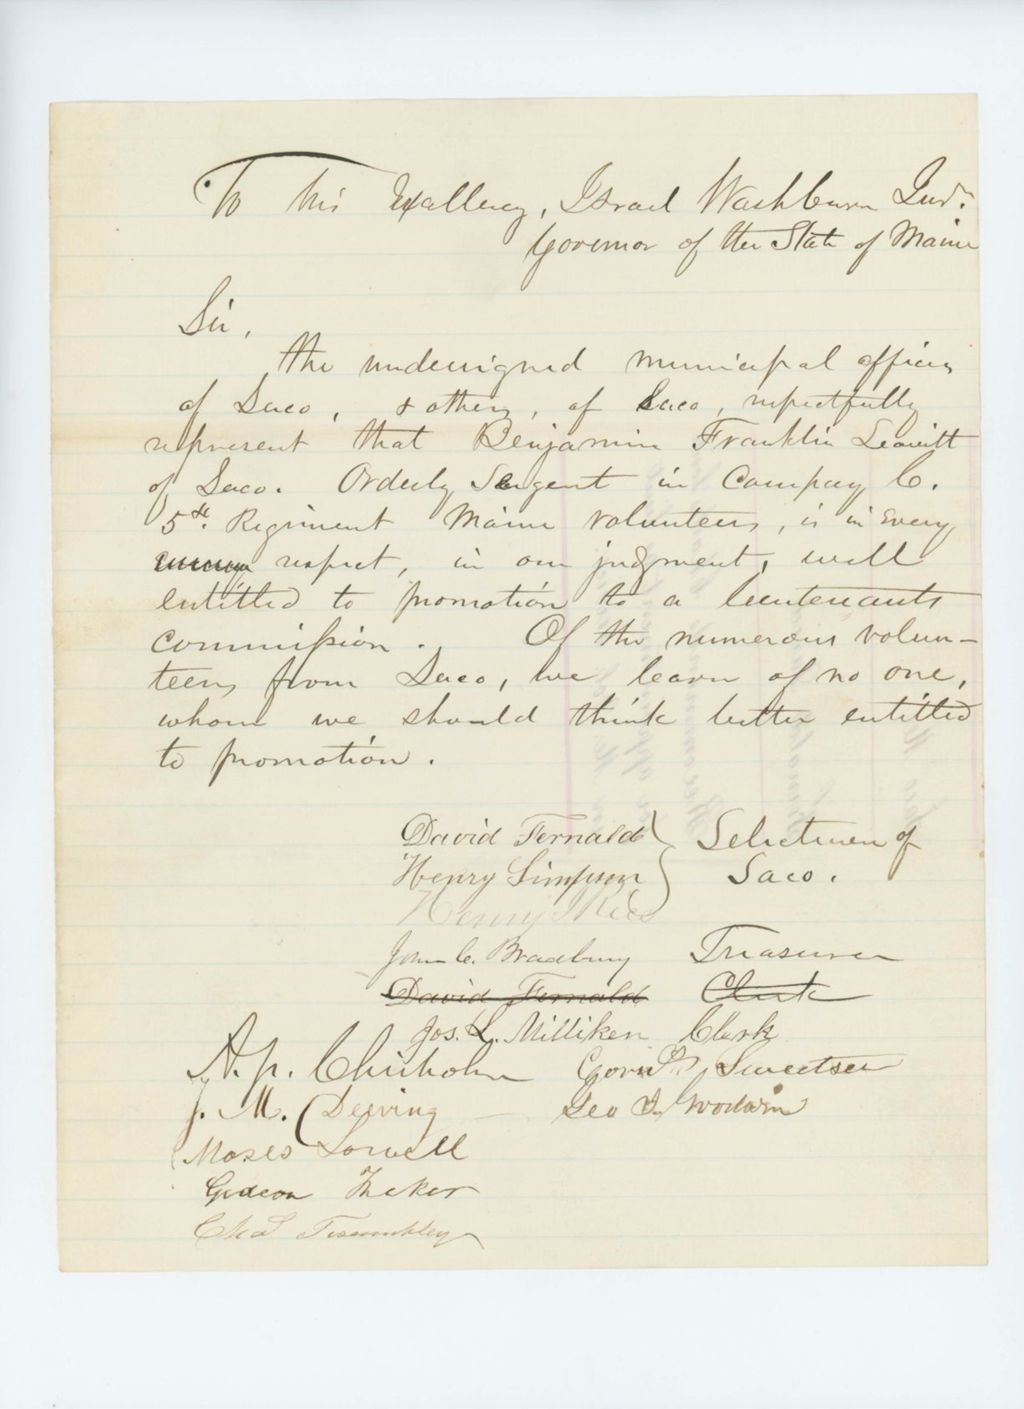 To his Excellency, Israel Washburn Junr.
Governor of the State of Maine
Sir,
the undersigned municipal officers
of Saco, & others, of Saco, respectfully
represent that Benjamin Franklin Leavitt
of Saco. Orderly Sergent in Company C.
5th. Regiment Maine volunteers, is in every
respect, in our judgment, well
entitled to promotion to a lieutenants
commission. Of the numerous volun-
teers from Saco, we learn of no one,
whom we should think better entitled
to promotion.
David Fernald } Selectmen of
Henry Simpson } Saco.
Henry
John C. Bradbury Treasurer
David Fernald Clerk
Jos. L. Milliken Clerk
A. P. Chisholm Sweetser
J. M. Deering Geo I. Goodwin
Moses Lowell
Gideon
Chas Trumbley